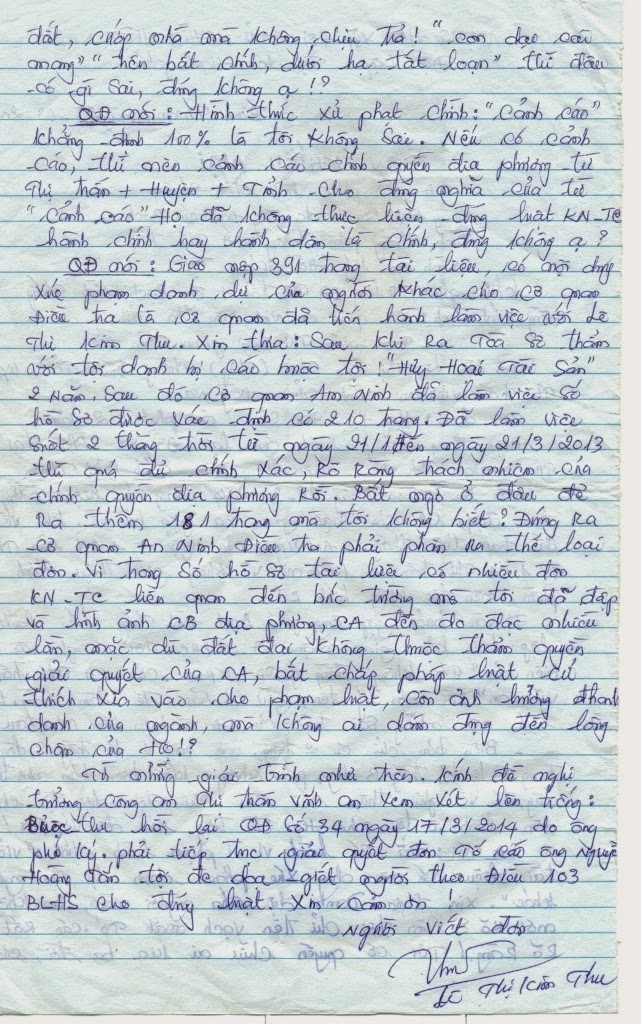 đất, cướp nhà mà không chịu trả! "con dại cái
mang" "trên bất chính, dưới hạ tất loạn" thì đâu
có gì sai, đúng không ạ!?
QĐ mới: Hình thức xử phạt chính: "cảnh cáo"
khẳng định 100% là tôi không sai. Nếu có cảnh
cáo, thì nên cảnh cáo chính quyền địa phương từ
Thị trấn + Huyện + Tỉnh cho đúng nghĩa của từ
"cảnh cáo" Họ đã không thực hiện đúng luật KN-TC
hành chính hay hành dân là chính, đúng không ạ?
QĐ mới: Giao nộp 391 trang tài liệu, có nội dung
xúc phạm danh dự của người khác cho cơ quan
Điều tra là cơ quan đã tiến hành làm việc với Lê
Thị Kim Thu. Xin thưa: Sau khi Ra Tòa Sơ thẩm
với tội danh bị cáo buộc tội! "Hủy Hoại Tài Sản"
2 Năm. Sau đó cơ quan An Ninh đã làm việc số
hồ sơ được xác định có 210 trang. Đã làm việc
suốt 2 tháng trời từ ngày 21/1 đến ngày 21/3/2013
thì quá đủ chính xác, Rõ Ràng trách nhiệm của
chính quyền địa phương rồi. Bất ngờ ở đâu đẻ
Ra thêm 181 trang mà tôi không biết? Đúng Ra
cơ quan An Ninh Điều tra phải phân ra thể loại
đơn. Vì trong số hồ sơ tài liệu, có nhiều đơn
KN-TC liên quan đến bức tường mà tôi đã đập
và hình ảnh CB địa phương, CA đến đo đạc nhiều
lần, mặc dù đất đai không thuộc thẩm quyền
giải quyết của CA, bất chấp pháp luật cứ
thích xía vào cho phạm luật, còn ảnh hưởng thanh
danh của ngành, mà không ai dám đụng đến lông
chân của Họ!?
Từ những giải trình như trên. Kính đề nghị
trưởng công an Thị trấn Vĩnh An xem xét lên tiếng:
thu hồi lại QĐ số 34 ngày 17/3/2014 do ông
phó ký. phải tiếp tục giải quyết đơn Tố cáo ông Nguyễn
Hoàng dân tội đe dọa giết người theo Điều 103
BLHS cho đúng luật Xin Cảm ơn!
Người viết đơn
Thu
Lê Thị Kim Thu